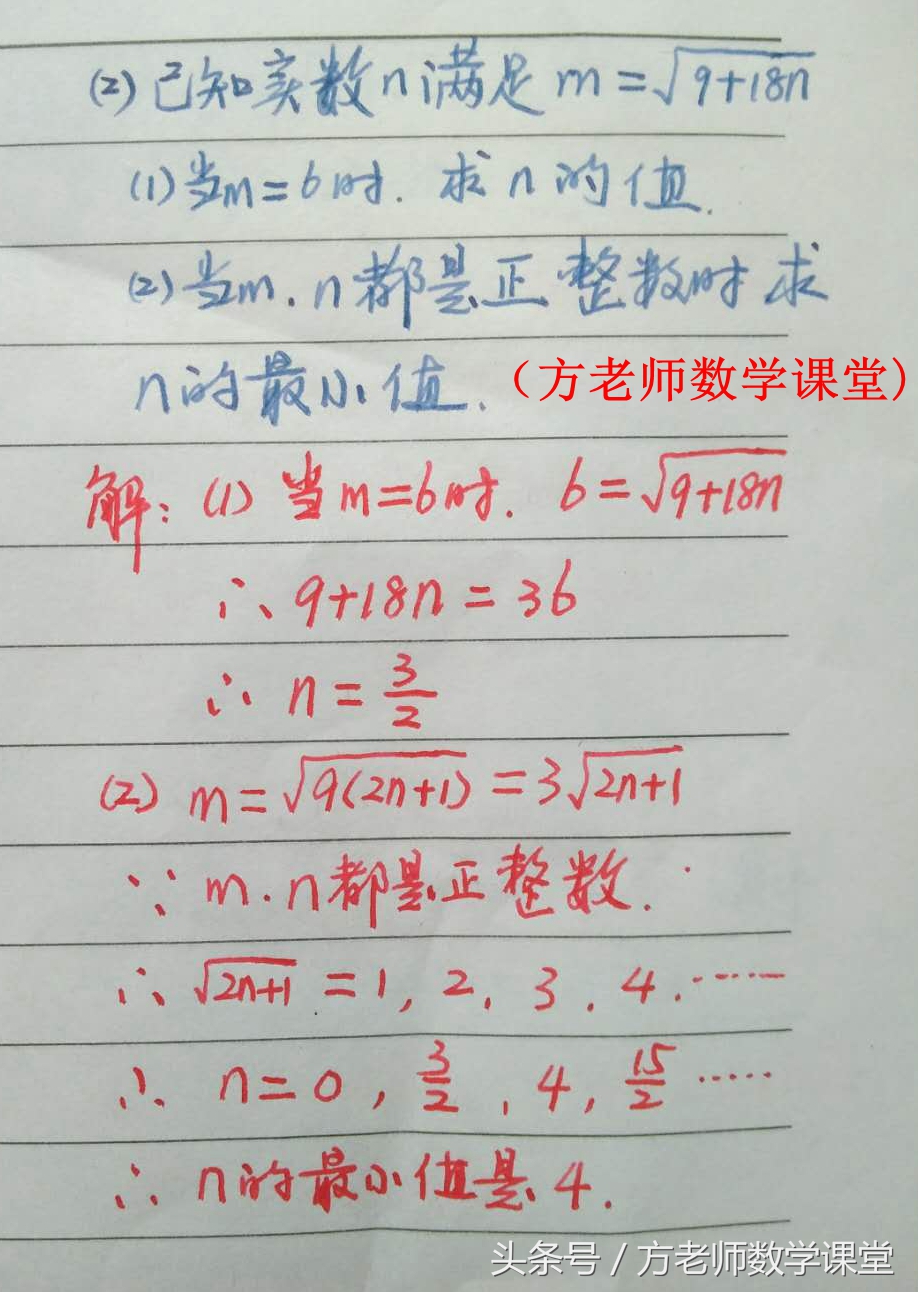 (2) 已知实数n满足 m=√(9+18n)
(1) 当m=6时. 求n的值.
(2) 当m.n都是正整数时求
n的最小值.（方老师数学课堂）
解：(1) 当m=6时. 6=√(9+18n)
∴ 9+18n=36
∴ n=3/2
(2) m=√(9(2n+1))=3√(2n+1)
∵ m.n都是正整数.
∴ √(2n+1)=1, 2, 3. 4.……
∴ n=0, 3/2, 4, 15/2……
∴ n的最小值是4.
头条号 / 方老师数学课堂